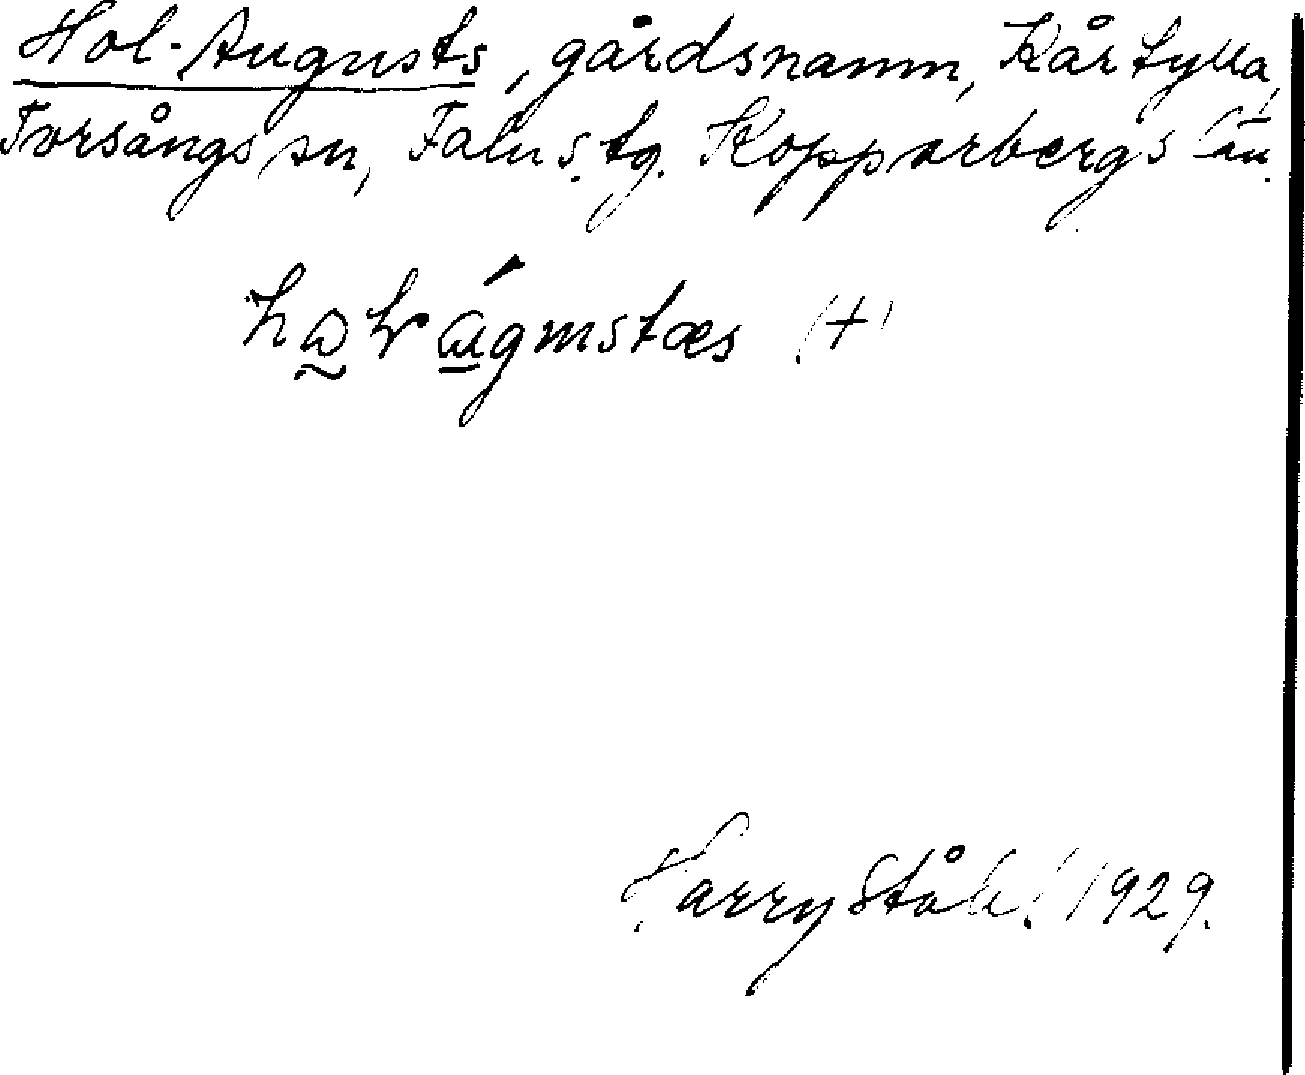 Hol-Augusts, gårdsnamn, Kårtylla,
Torsångs sn, Falu s. tg. Kopparbergs län.
(+)
Harry Ståhl 1929.